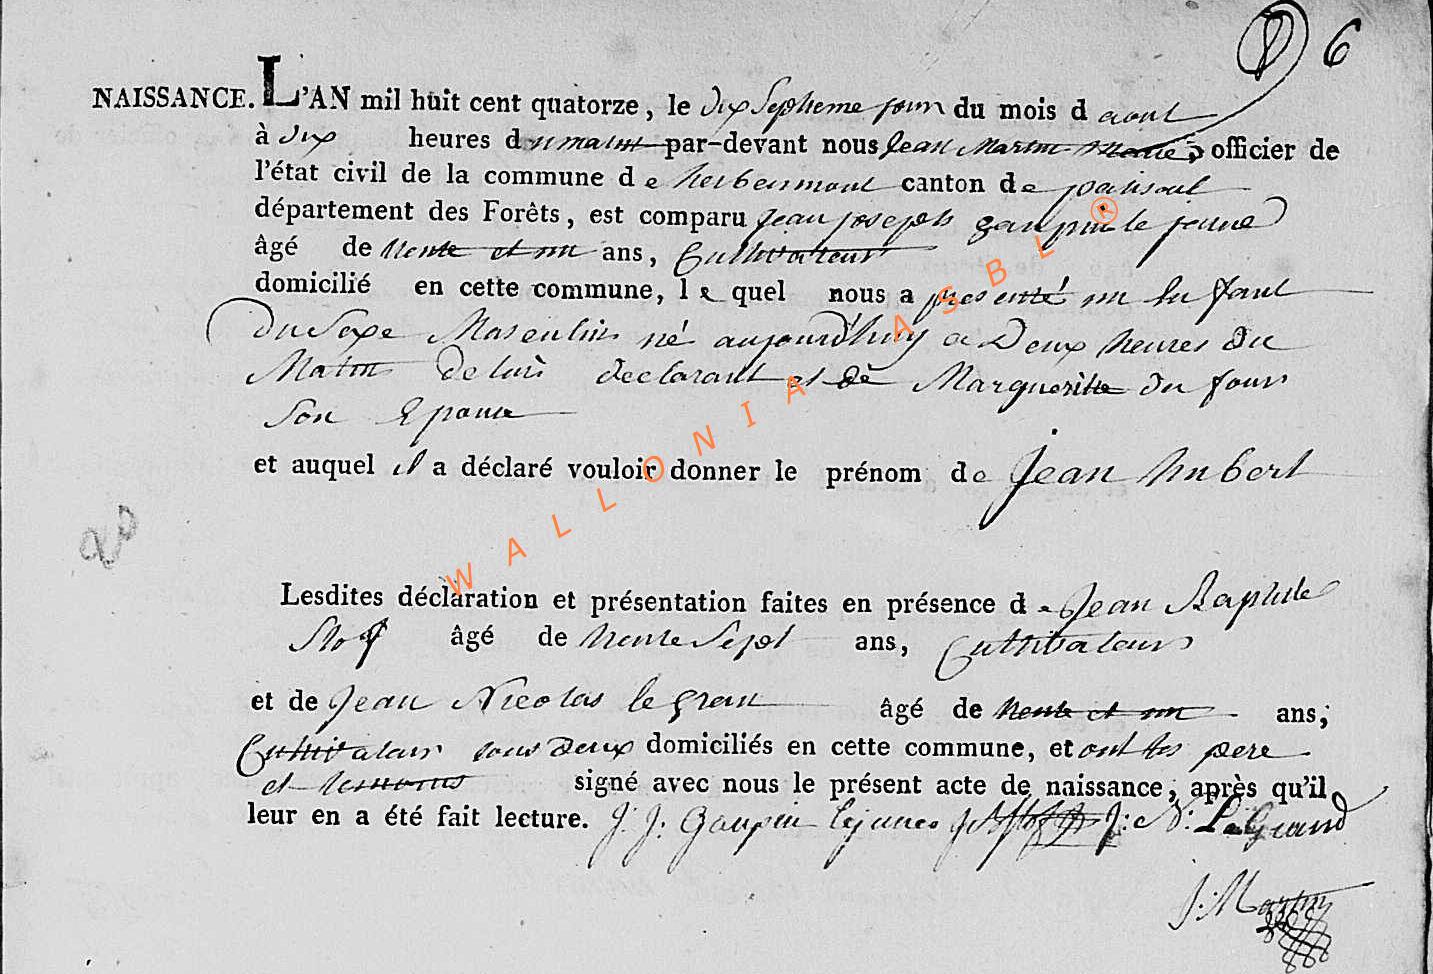 6
NAISSANCE. L'AN mil huit cent quatorze, le dix septieme jour du mois d aout
à dix heures du matin par-devant nous Jean Martin Maire, officier de
l'état civil de la commune de herbeumont canton de palisoul
département des Forêts, est comparu Jean joseph gaupin le jeune
âgé de trente et un ans, Cultivateur
domicilié en cette commune, le quel nous a presenté un Enfant
Du Sexe Masculin né aujourd'huy a Deux heures Du
Matin de luis declarant et dè Margueritte du four
Son Epouse
et auquel il a déclaré vouloir donner le prénom de Jean hubert
Lesdites déclaration et présentation faites en présence de Jean Baptiste
âgé de trente Sept ans, Cultivateur
et de Jean Nicolas le gran âgé de trente et un ans,
Cultivateur tous deux domiciliés en cette commune, et ont les pere
et temoins signé avec nous le présent acte de naissance, après qu'il
leur en a été fait lecture. J: J: Gaupin lejeune J: N: LeGrand
J: Martin
WALLONIA ASBL ®